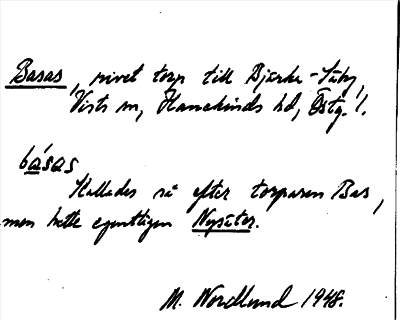 Basas, rivet torp till Bjärka-Säby,
Vists sn, Hanekinds hd, Östg. l.
básas
Kallades så efter torparen Bas,
men hette egentligen Nysäter.
M. Nordlund 1948.